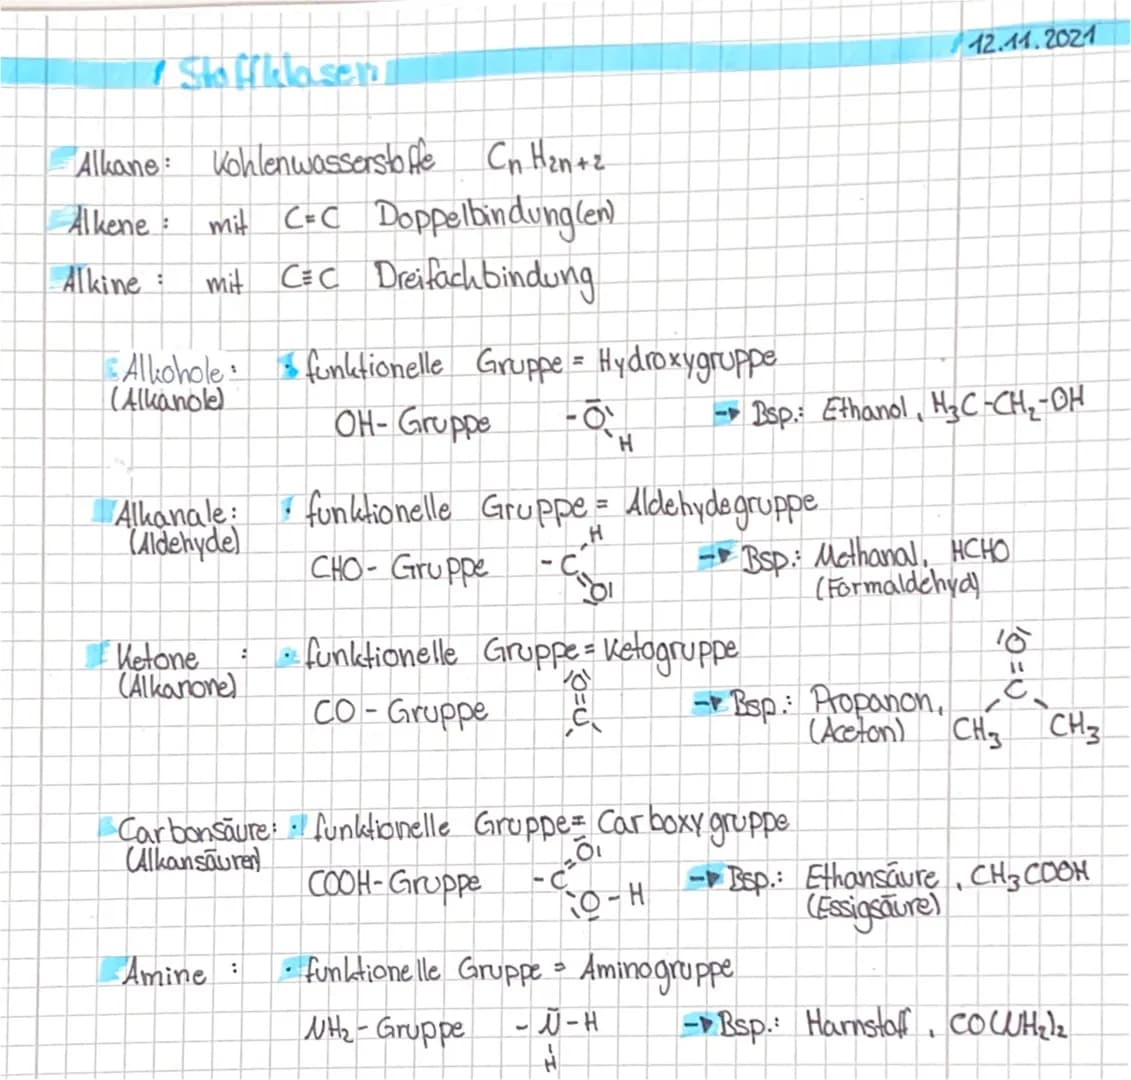 12.11.2021
Stoffklasen
Alkane: Kohlenwasserstoffe CnH2n+2
Alkene: mit C=C Doppelbindung(en)
Alkine: mit C≡C Dreifachbindung
Alkohole: • funktionelle Gruppe = Hydroxygruppe
(Alkanole)
OH-Gruppe -O H → Bsp.: Ethanol, H3C-CH2-OH
Alkanale: • funktionelle Gruppe = Aldehydegruppe
(Aldehyde)
CHO-Gruppe -C H O → Bsp.: Methanal, HCHO
(Formaldehyd)
Ketone: • funktionelle Gruppe = Ketogruppe
(Alkanone)
CO-Gruppe O = C → Bsp.: Propanon, O = C CH3 CH3
(Aceton)
Carbonsäure: • funktionelle Gruppe = Carboxygruppe
(Alkansäuren)
COOH-Gruppe -C =O O-H → Bsp.: Ethansäure, CH3COOH
(Essigsäure)
Amine: • funktionelle Gruppe = Aminogruppe
NH2-Gruppe -N-H H → Bsp.: Harnstoff, CO(NH2)2